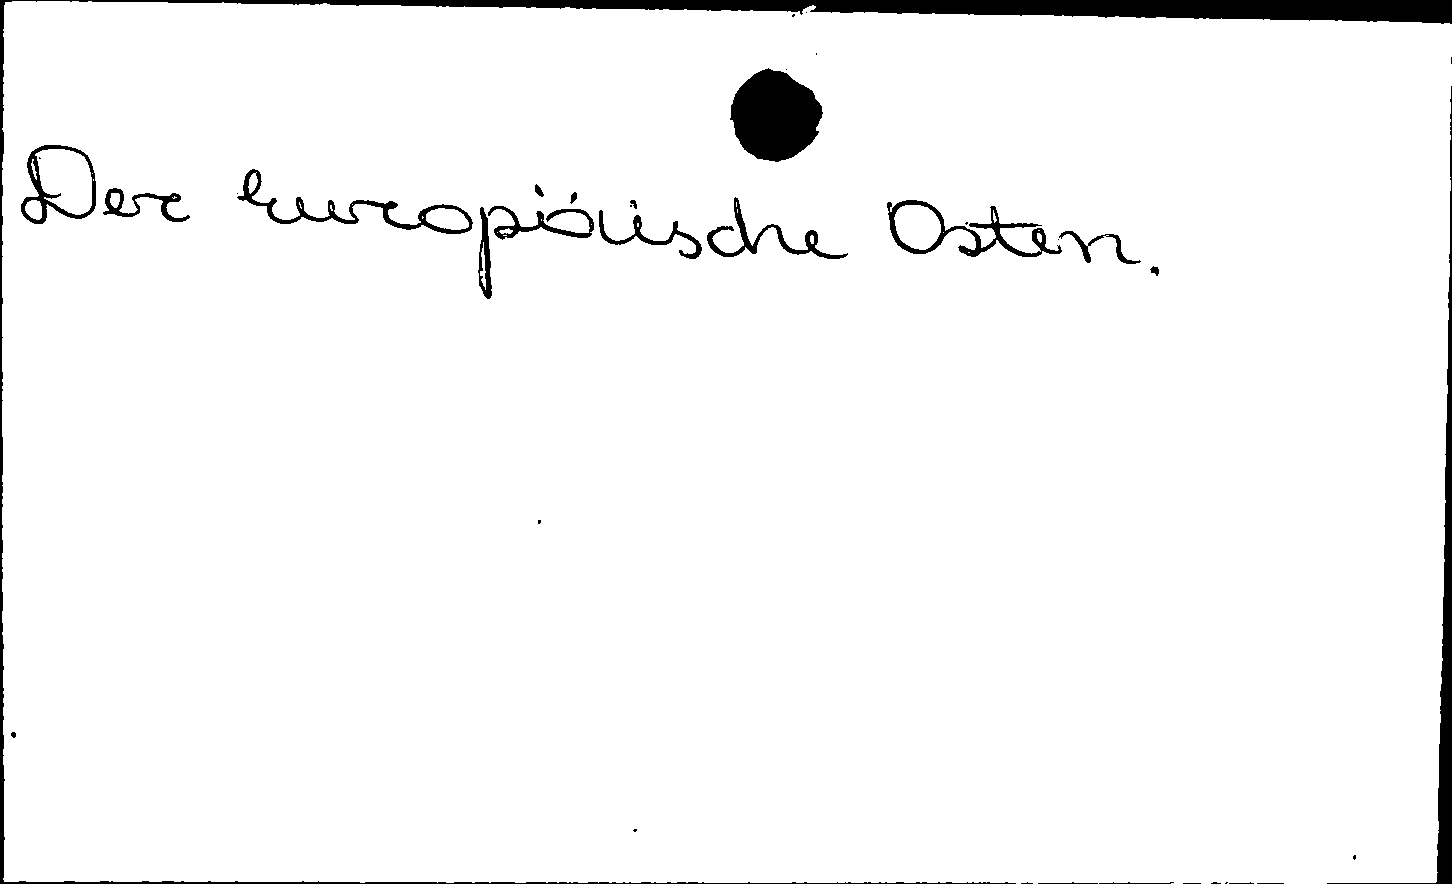 Der europäische Osten.